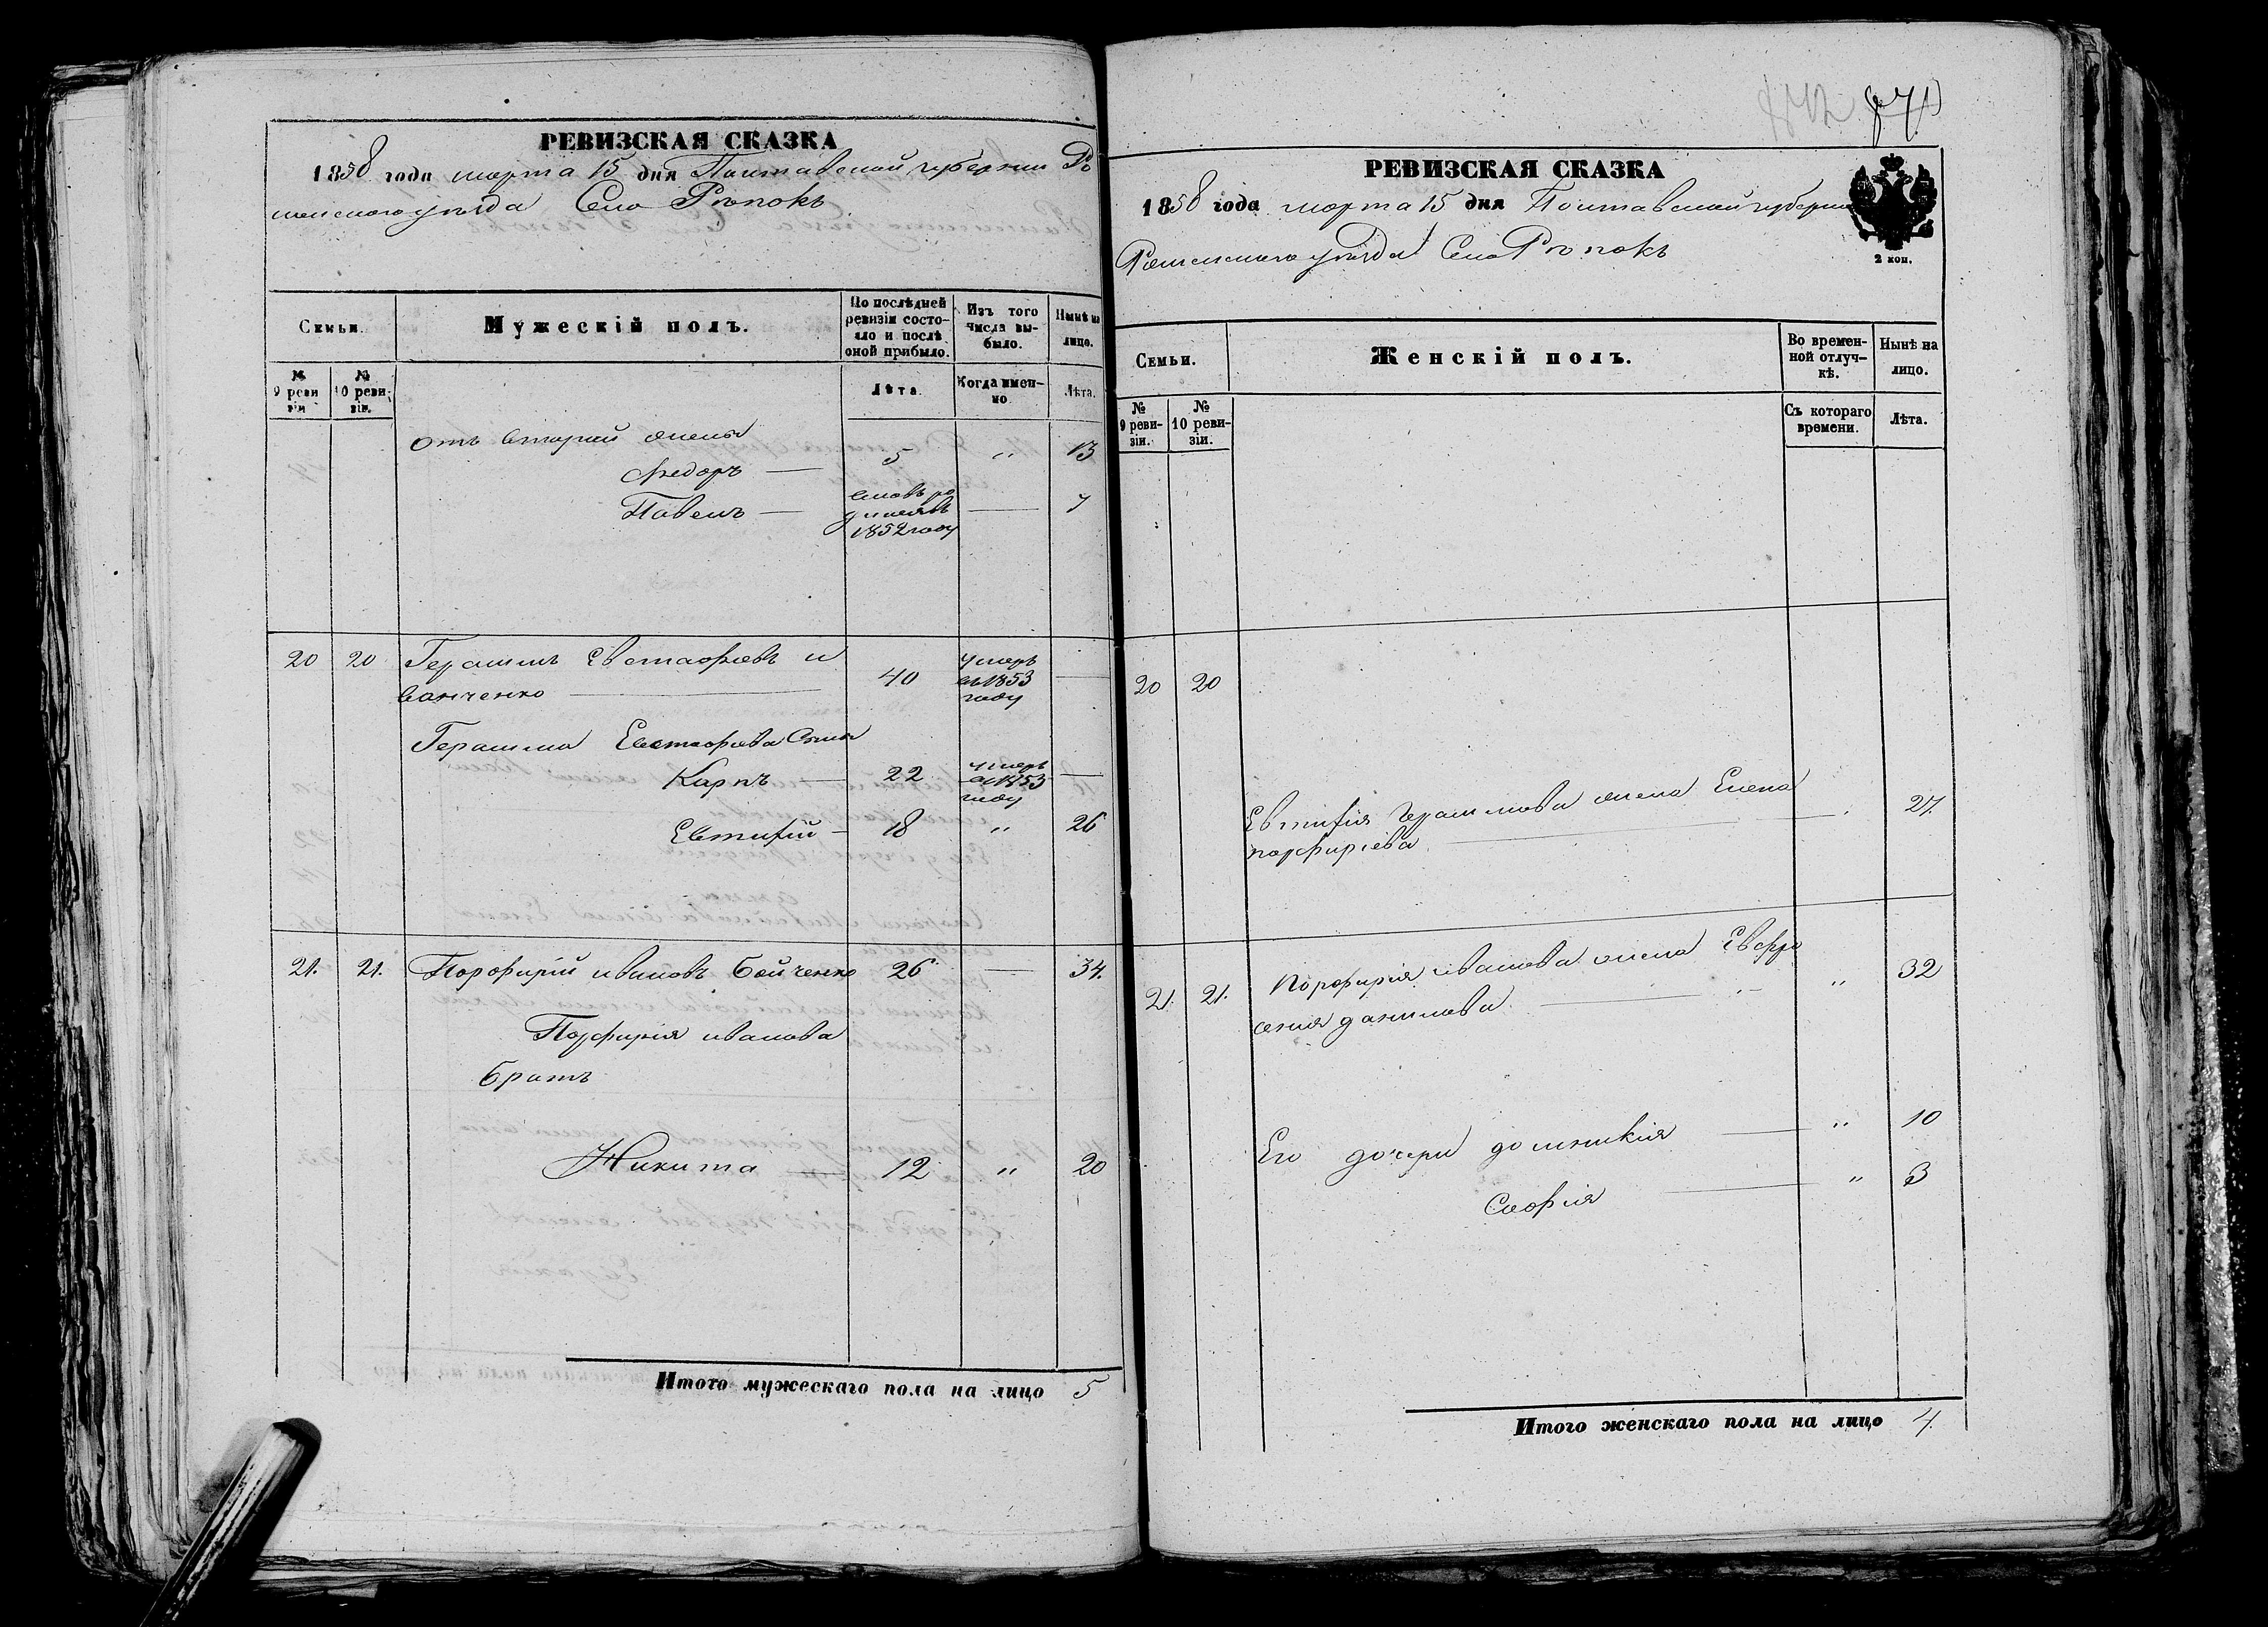 РЕВИЗСКАЯ СКАЗКА
1858 года марта 15 дня Полтавской губернии Ро
менского уѣзда Село Рѣпокъ
Семьи.
Мужескій полъ.
По послѣдней ревизіи состо-
яло и послѣ оной прибыло.
Изъ того числа вы-
было.
Нынѣ на лицо.
№ 9 реви зіи
№ 10 реви-
зіи.
Лѣта.
Когда имен-
но
Лѣта.
отъ второй жены
Федоръ — 5 „ 13
Павелъ — ро
1852 году — 7
20 20 Герасимъ Евстафіевъ и
ванченко — 40 умеръ въ 1853 году —
Герасима Евстафіева Сыны
Карпъ — 22 умеръ въ 1853 году —
Евтифій — 18 „ 26
21. 21. Порфирій ивановъ Бойченко 26 — 34.
Порфирія иванова
братъ
Никита — 12 „ 20
Итого мужескаго пола на лицо 5
РЕВИЗСКАЯ СКАЗКА
1858 года марта 15 дня Полтавской губерніи
Роменского уѣзда Село Рѣпокъ
2 коп.
Семьи.
Женскій полъ.
Во времен-
ной отлуч-
кѣ.
Нынѣ на лицо.
№ 9 реви-
зіи.
№ 10 реви-
зіи.
Съ котораго времени.
Лѣта.
20 20
Евтифія Герасимова жена Елена
порфиріева — „ 27.
21. 21. Порфирія иванова жена Евфро
сения данилова — „ 32
Его дочери домникия — „ 10
Софія — „ 3
Итого женскаго пола на лицо 4.